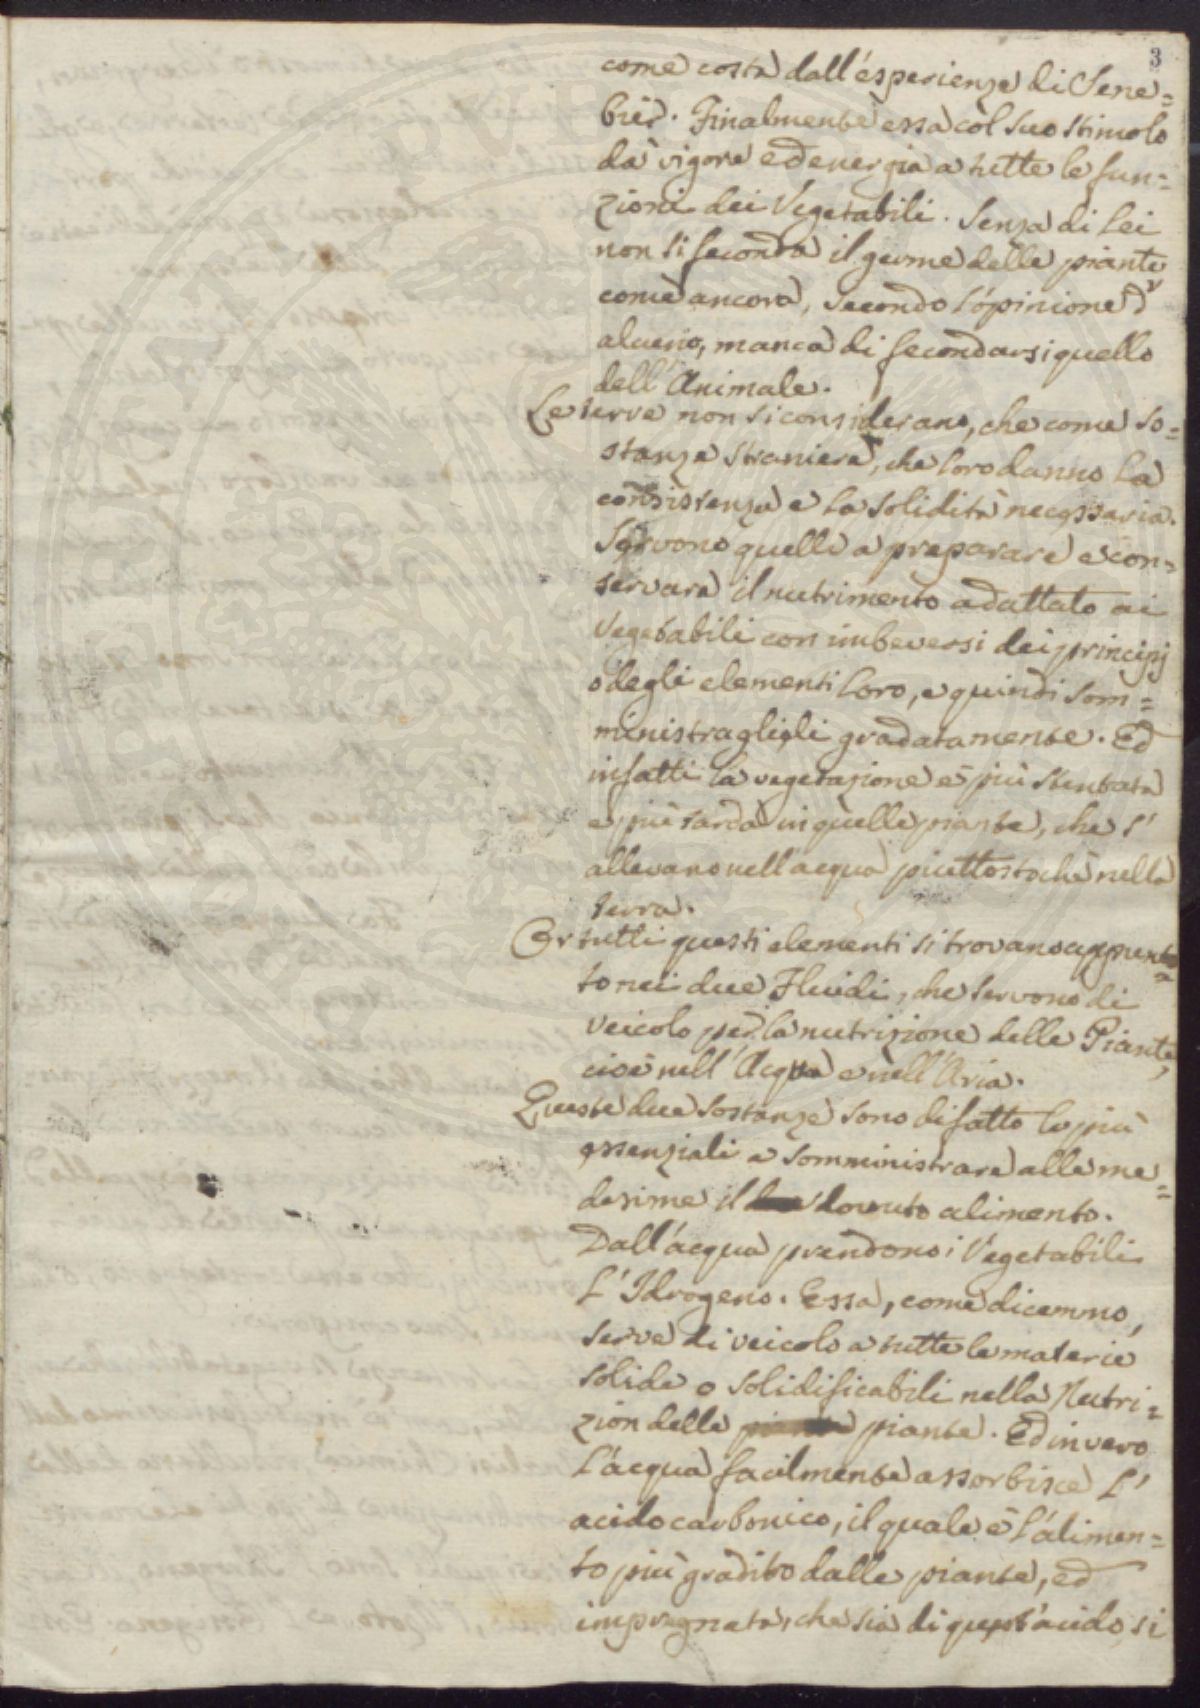 3
come costa dall'esperienze di Sene=
bier. Finalmente essa col suo stimolo
dà vigore ed energia a tutte le fun=
zioni dei Vegetabili. Senza di lei
non si feconda il germe delle piante
come ancora, secondo l'opinione d'
alcuno, manca di fecondarsi quello
dell'Animale.
Le terre non si considerano, che come so=
stanze straniere, che loro danno la
consistenza e la solidità necessaria.
Servono quelle a preparare e con=
servare il nutrimento adattato ai
Vegetabili con imbeversi dei principj
o degli elementi loro, e quindi som=
ministraglieli gradatamente. Ed
infatti la vegetazione è più stentata
e più tarda in quelle piante, che s'
allevano nell'acqua piuttostochè nella
terra.
Or tutti questi elementi si trovano appun=
to nei due Fluidi, che servono di
veicolo per la nutrizione delle Piante,
cioè nell'Acqua e nell'Aria.
Queste due sostanze sono di fatto le più
essenziali a somministrare alle me=
desime il dovuto alimento.
Dall'acqua prendono i Vegetabili
l'Idrogeno. Essa, come dicemmo,
serve di veicolo a tutte le materie
solide o solidificabili nella Nutri=
zion delle piante. Ed invero
l'acqua facilmente assorbisce l'
acido carbonico, il quale è l'alimen=
to più gradito dalle piante, ed
impregnata, che sia di quest'acido, si